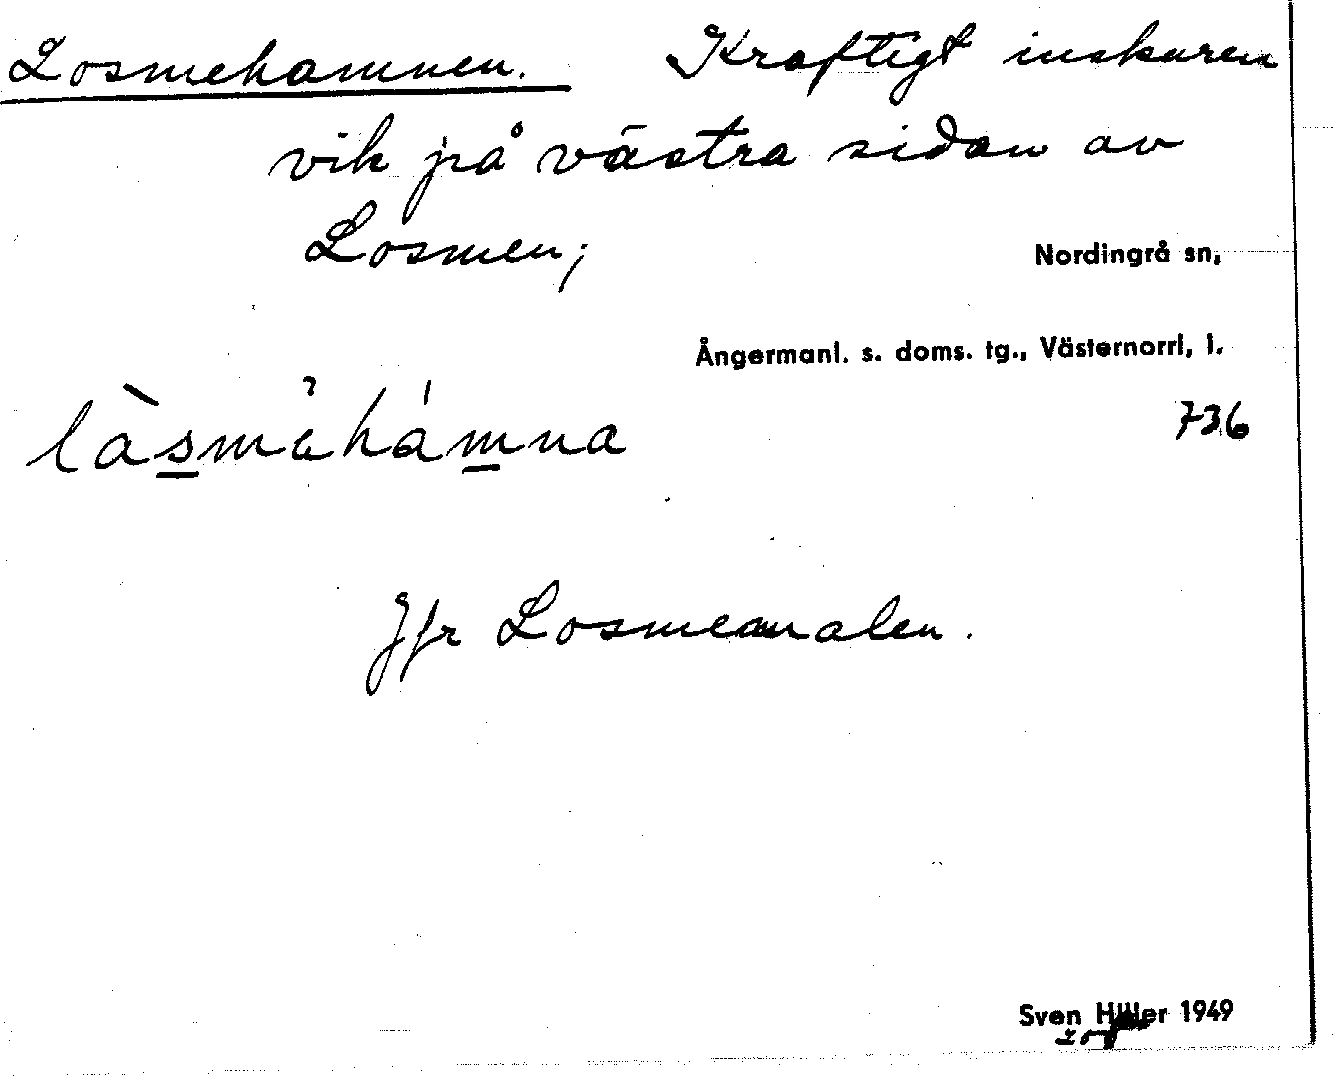 Losmehamnen. Kraftigt inskuren
vik på västra sidan av
Losmen;
Nordingrå sn,
Ångermanl. s. doms. tg., Västernorrl, l.
736
làsmåhámna
Jfr Losmemalen.
Sven Hiller 1949